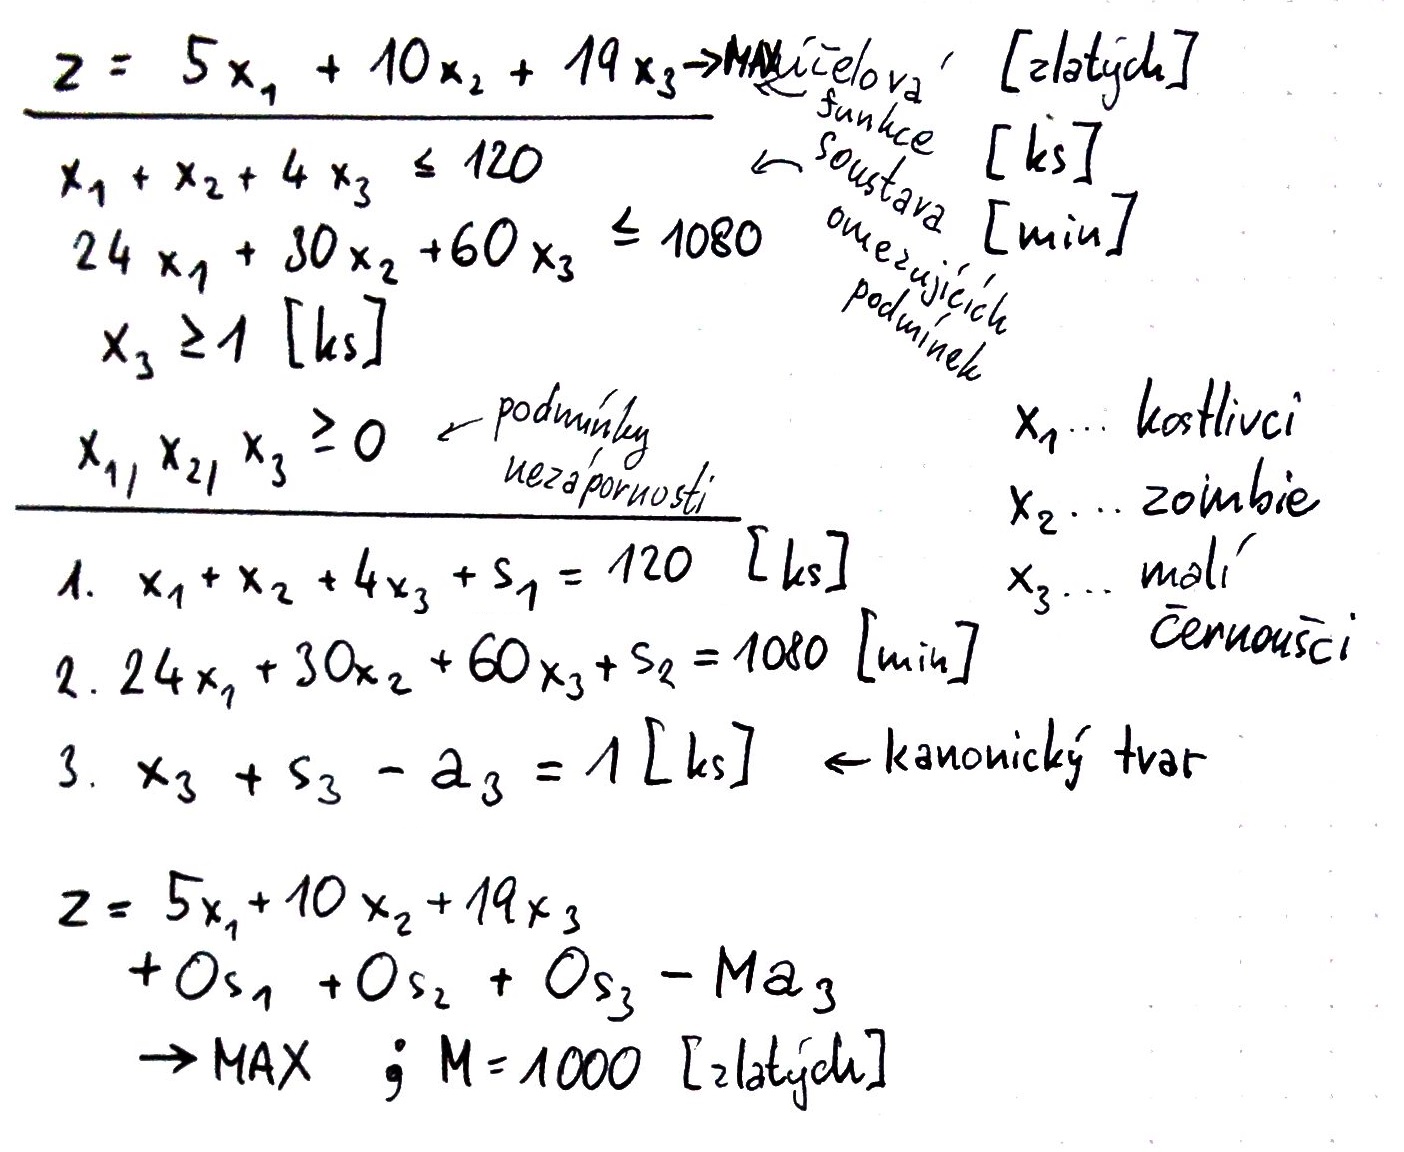 z = 5x₁ + 10x₂ + 19x₃ → MAX
účelová
funkce
[zlatých]
x₁ + x₂ + 4x₃ ≤ 120
[ks]
24x₁ + 30x₂ + 60x₃ ≤ 1080
[min]
← soustava
omezujících
podmínek
x₃ ≥ 1 [ks]
x₁, x₂, x₃ ≥ 0
← podmínky
nezápornosti
x₁... kostlivci
x₂... zoimbie
x₃... malí
černoušci
1. x₁ + x₂ + 4x₃ + s₁ = 120 [ks]
2. 24x₁ + 30x₂ + 60x₃ + s₂ = 1080 [min]
3. x₃ + s₃ - a₃ = 1 [ks] ← kanonický tvar
z = 5x₁ + 10x₂ + 19x₃
+ 0s₁ + 0s₂ + 0s₃ - Ma₃
→ MAX ; M = 1000 [zlatých]